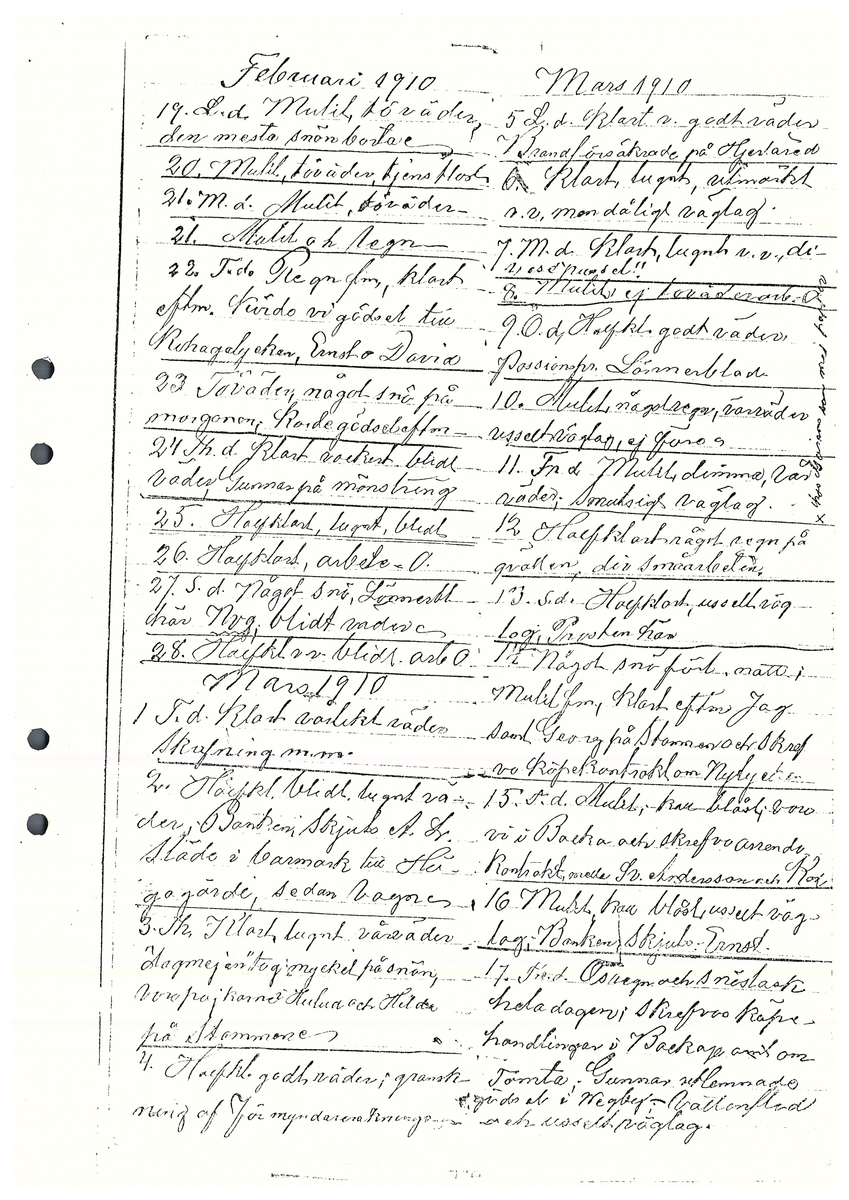 Februari 1910
19. L.d. Mulit, töväder,
den mesta snön borta
20. Mulit, töväder, tjenstlost
21. M.d. Mulit, töväder
21. Mulit och regn
22. T.d. Regn fm, klart
eftm. Körde vi gödsel till
Kohagalyckan, Ernst o David
23 Töväder, något snö på
morgonen, Körde gödsel affm
24 Th. d Klart vackert blidt
väder, Gunnar på mönstring
25. Halfklart, lugnt, blidt
26. Halfklart, arbete = 0.
27. S.d. Något snö, Lönnerbl
här Nog blidt väder
28. Halfkl v.v. blidt. arb 0
Mars 1910
1 T.d. Klart vårlikt väder
skrifning m.m.
2. Halfkl. blidt, lugnt vä-
der, i Banken, Skjuts A. L.
Släde i barmark till Hu-
gagärde, sedan vagn
3. Th. Klart, lugnt vårväder
"dagmejen" tog mycket på snön,
voro pojkarne Hulu och Hilda
på Stommen
4. Halfkl. godt väder, i gransk-
ning af Förmyndareräkningar
Mars 1910
5 L.d. Klart v. godt väder
Brandförsäkrade på Hjertared
6. Klart, lugnt, utmärkt
v.v. men dåligt väglag.
7. M.d. Klart, lugnt v.v., di-
verse pussel!!
8. Mulit, ej töväder arb. 0
9. O.d. Halfkl. godt väder,
Possionspr. Lönnerblad
10. Mulit, något regn, vårväder
uselt väglag, ej före
11. Fr.d. Mulit, dimma, vår
väder, smutsigt väglag.
12. Halfklart något regn på
qvällen, div småarbeten.
13. S.d. Halfklart, uselt väg
lag, Prosten här
14 Något snö förl. natt,
Mulit fm, klart eftm Jag
samt Georg på Stommen och skref
vo köpekontrakt om Nylyckan
15. T.d. Mulit, kall blåst, voro
vi i Backa och skrefvo arrende
Kontrakt, med Sv. Andersson och
16 Mulit, kall blåst, uselt väg-
lag, i Banken, skjuts-Ernst
17. Th.d. Ösregn och snöslask
hela dagen, skrefvos köpe-
handlingar i Backa om
Tomta, Gunnar utlemnade
gödsel i Wegby, - Vattenflod
och uselt väglag.